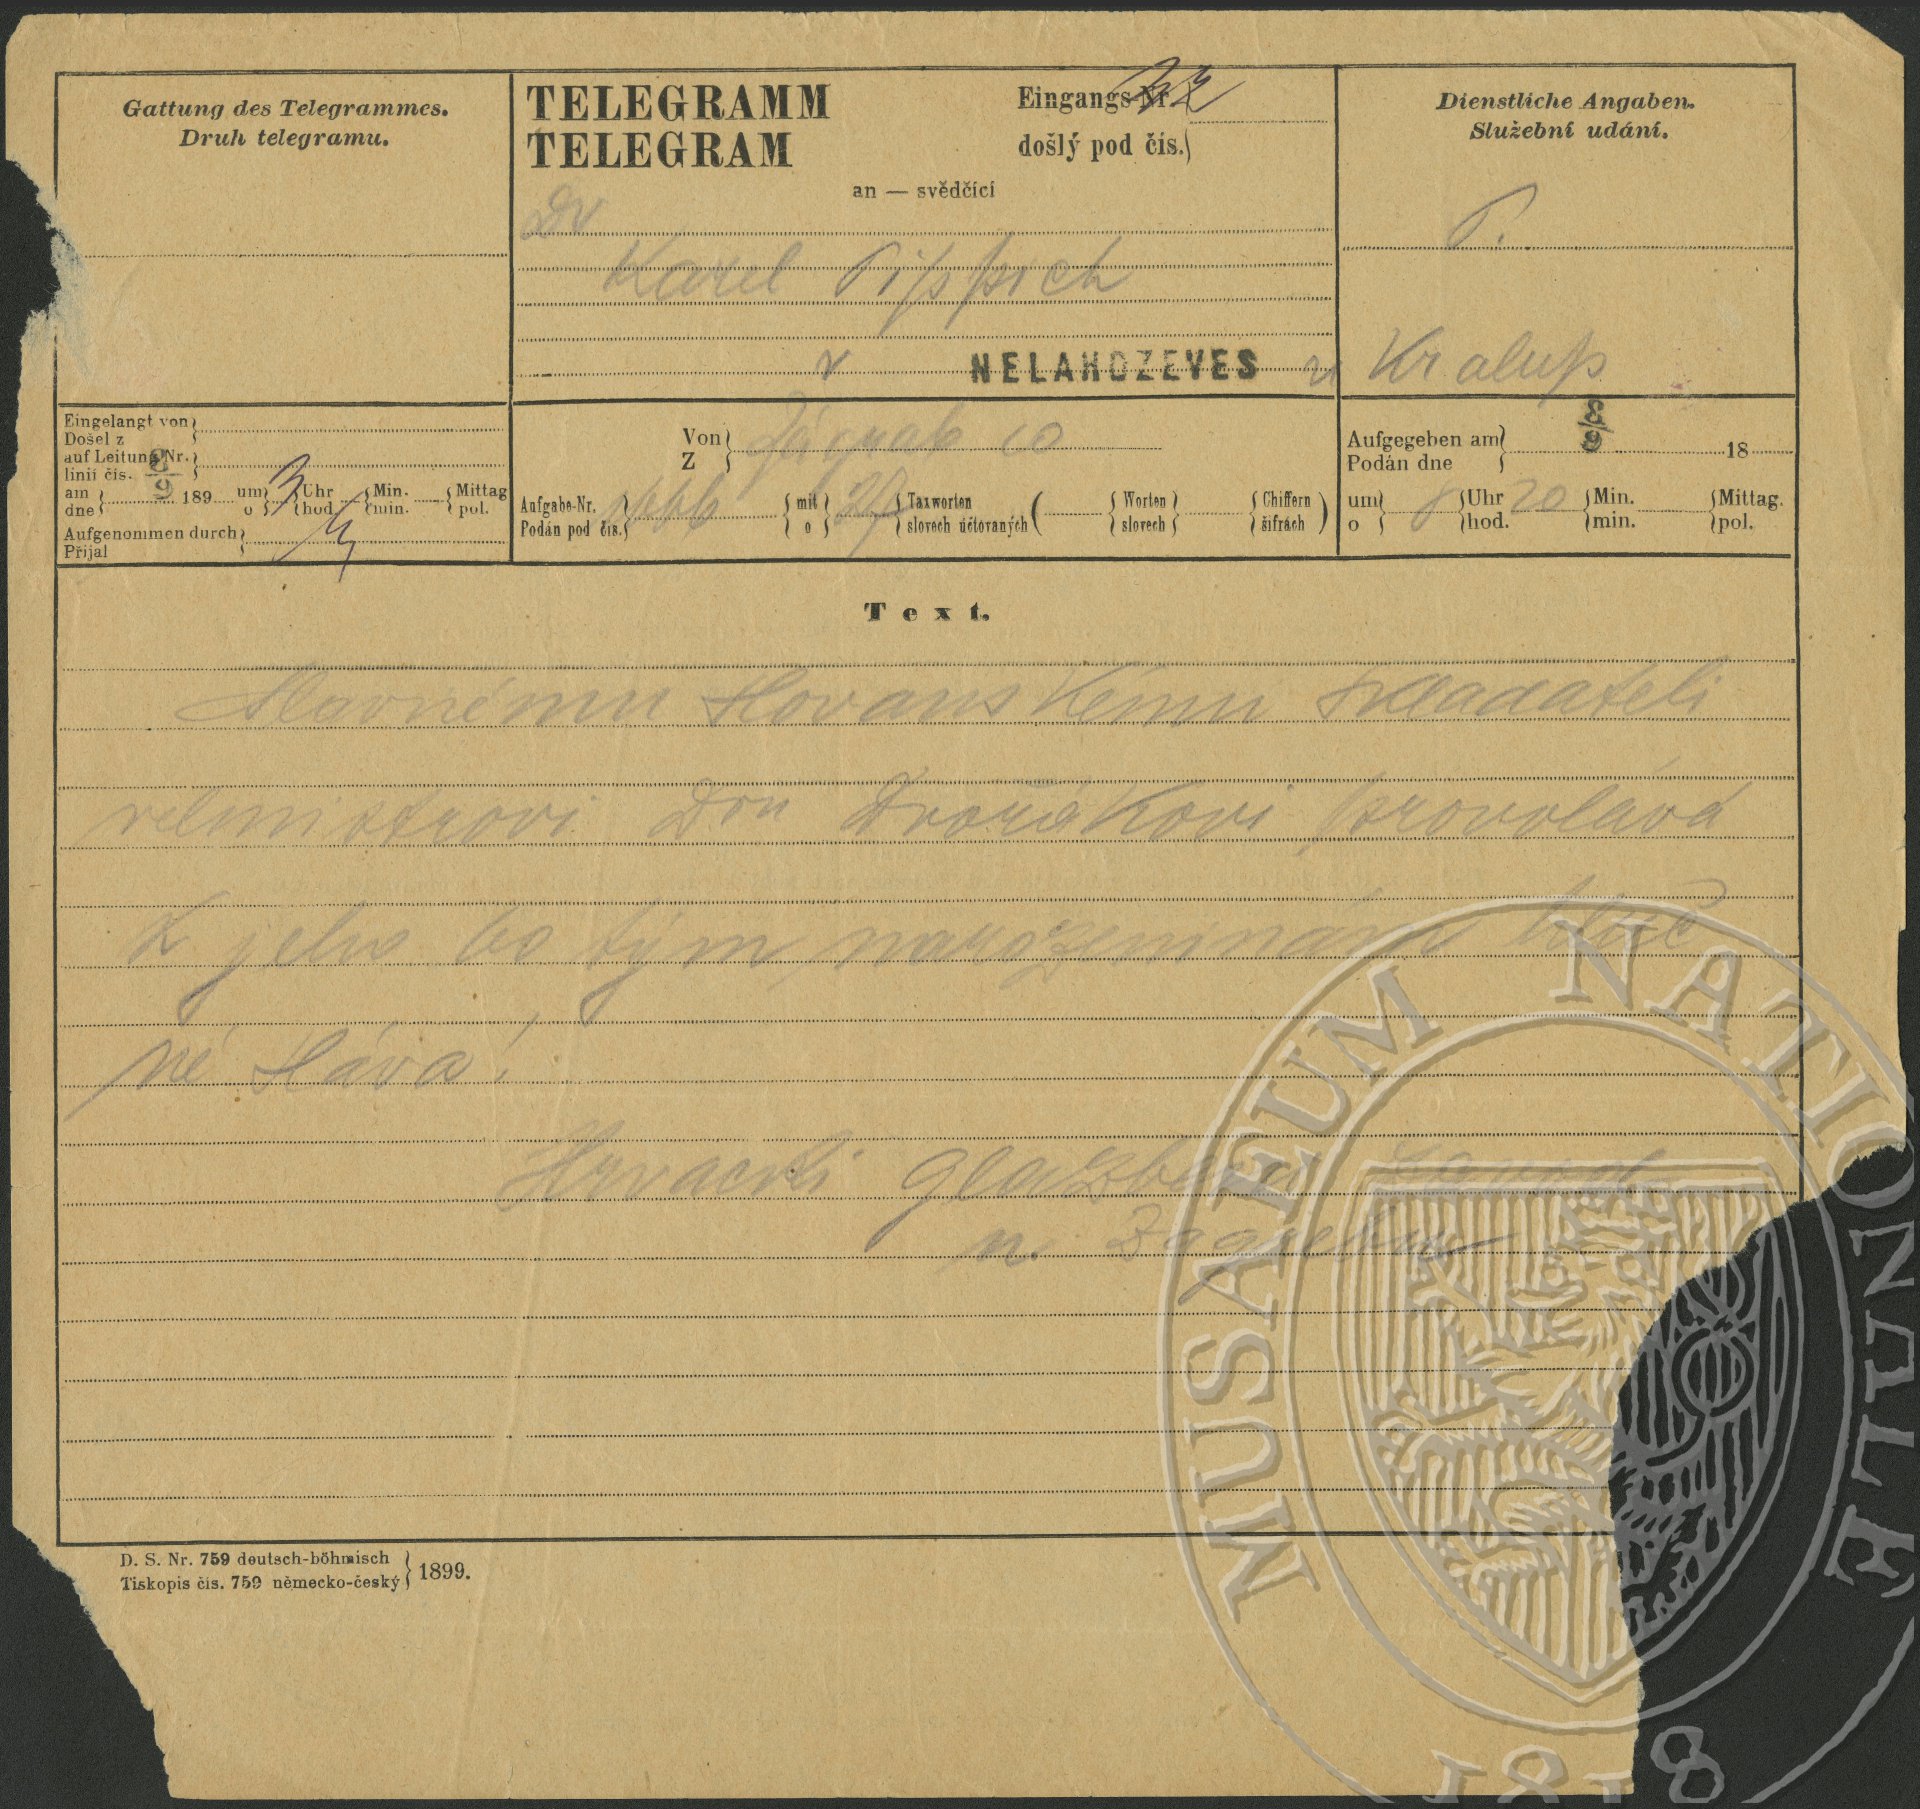 Gattung des Telegrammes.
Druh telegramu.
TELEGRAMM
TELEGRAM
Eingangs-Nr.
došlý pod čís.
an — svědčící
Dienstliche Angaben.
Služební udání.
Dr
Karel Pippich
P.
v NELAHOZEVES u Kralup
Eingelangt von
Došel z
auf Leitung Nr.
linii čís.
am
dne
189
um
o
3
Uhr
hod.
Min.
min.
Mittag
pol.
Aufgenommen durch
Přijal
Von
Z
Aufgabe-Nr.
Podán pod čís.
mit
o
Taxworten
slovech účtovaných
Worten
slovech
Chiffern
šifrách
Aufgegeben am
Podán dne
8/9
18
um
o
Uhr
hod.
20
Min.
min.
Mittag.
pol.
Text.
Slavnému slovanskému skladateli
velmistrovi Dru Dvořákovi provolává
k jeho 60 tým narozeninám hluč
né Sláva!
Hrvacki glazbeni zavod
u Zagrebu
D. S. Nr. 759 deutsch-böhmisch
Tiskopis čís. 759 německo-český
1899.
MUSAEUM NATIONALE
1818